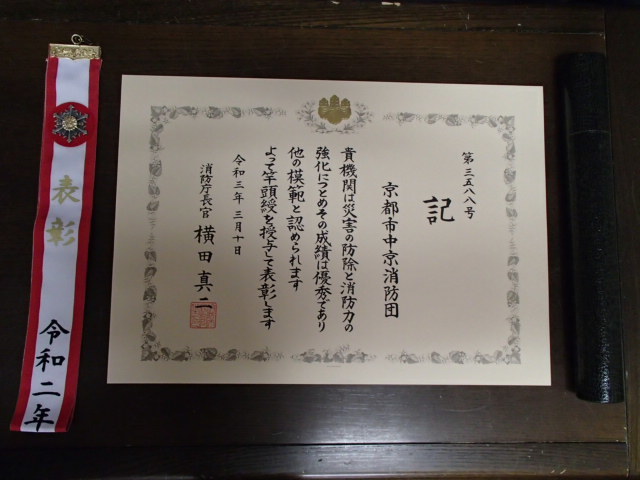 第三五八八号
記
京都市中京消防団
貴機関は災害の防除と消防力の
強化につとめその成績は優秀であり
他の模範と認められます
よって竿頭綬を授与して表彰します
令和三年三月十日
消防庁長官 横田真二
表彰
令和二年